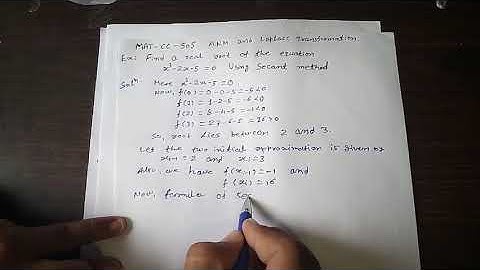 MAT-CC-505 ANM and Laplace Transformation
Ex: Find a real root of the equation
x³-2x-5=0 Using Secant method
Solⁿ. Here x³-2x-5=0
Now, f(0)=0-0-5=-5<0
f(1)=1-2-5=-6<0
f(2)=8-4-5=-1<0
f(3)=27-6-5=16>0
So, root lies between 2 and 3.
Let the two initial approximation is given by
=2 and =3
Also, we have =-1 and
=16
Now, formula of sec